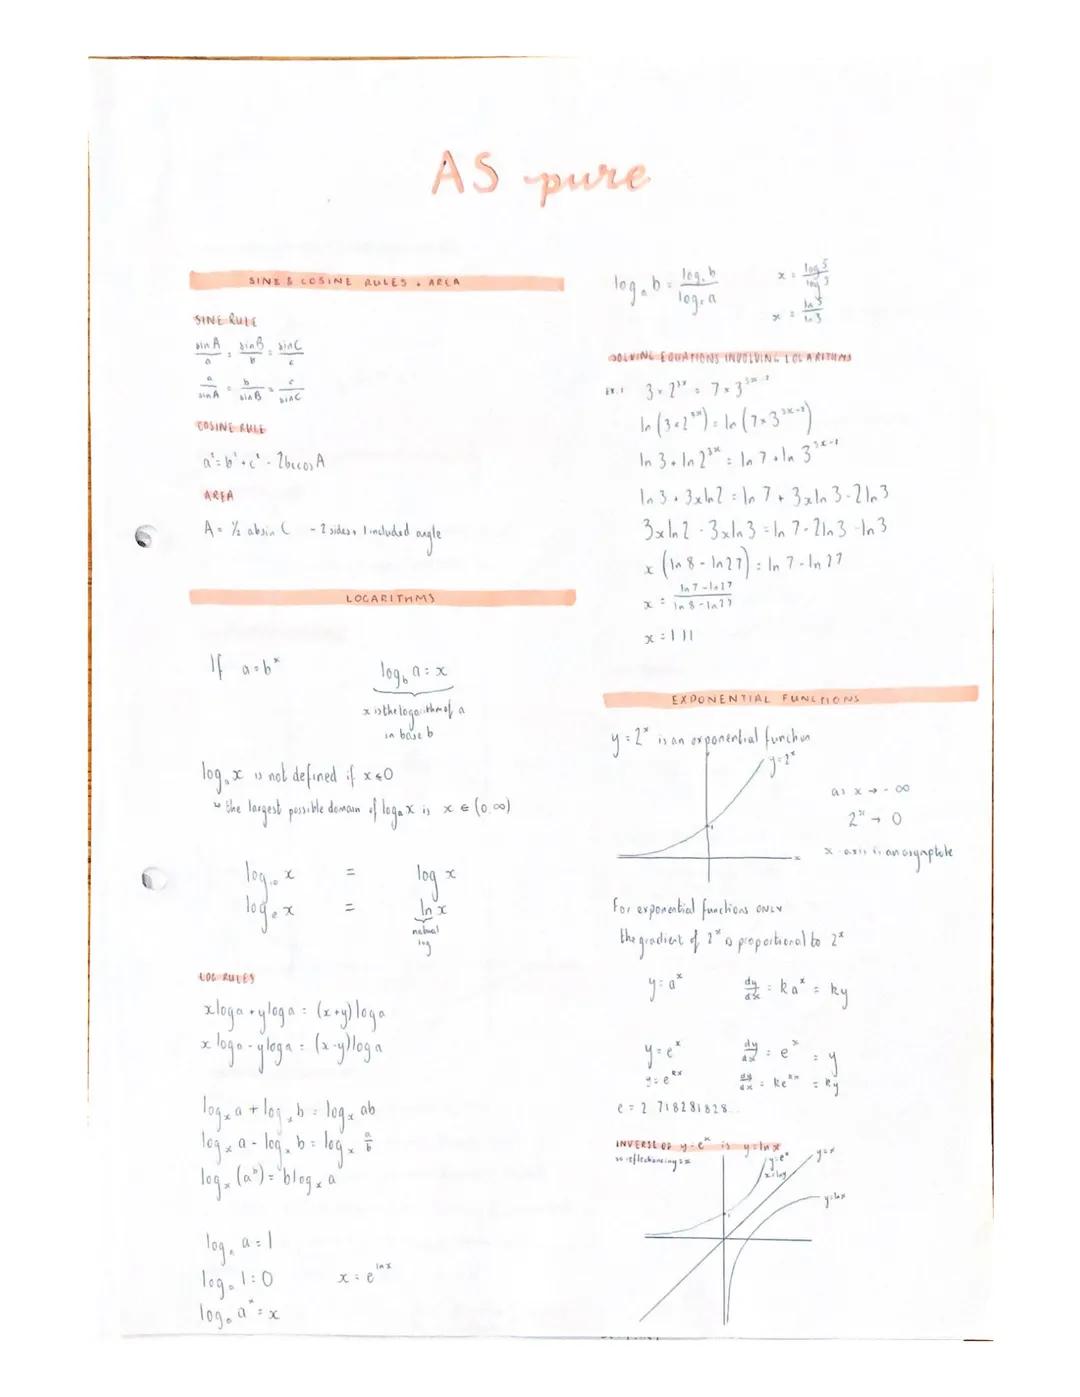 AS pure
SINE & COSINE RULES + AREA
SINE RULE
sinA/a = sinB/b = sinC/c
a/sinA = b/sinB = c/sinC
COSINE RULE
a² = b² + c² - 2bccosA
AREA
A = ½ absin C - 2 sides + 1 included angle
LOGARITHMS
If a = bˣ log_b a = x
x is the logarithm of a
in base b
logₐx is not defined if x ≤ 0
↳ the largest possible domain of logₐx is x ∈ (0, ∞)
log₁₀ x = log x
logₑ x = ln x
natural
log
LOG RULES
xloga + yloga = (x+y)loga
xloga - yloga = (x-y)loga
logₓ a + logₓ b = logₓ ab
logₓ a - logₓ b = logₓ a/b
logₓ (aᵇ) = blogₓ a
logₐ a = 1
logₐ 1 = 0 x = e^(ln x)
logₐ aˣ = x
logₐ b = log_c b / log_c a x = log 5 / log 3
x = ln 5 / ln 3
SOLVING EQUATIONS INVOLVING LOGARITHMS
Ex. 1 3 × 2^(3x) = 7 × 3^(3x-2)
ln (3 × 2^(3x)) = ln (7 × 3^(3x-2))
ln 3 + ln 2^(3x) = ln 7 + ln 3^(3x-2)
ln 3 + 3xln2 = ln 7 + 3xln 3 - 2ln3
3xln2 - 3xln3 = ln 7 - 2ln3 - ln3
x (ln 8 - ln27) = ln 7 - ln 27
x = (ln 7 - ln27) / (ln 8 - ln27)
x = 1.11
EXPONENTIAL FUNCTIONS
y = 2ˣ is an exponential function
y = 2ˣ
as x → -∞
2ˣ → 0
x-axis is an asymptote
1
x
For exponential functions ONLY
the gradient of 2ˣ is proportional to 2ˣ
y = aˣ dy/dx = kaˣ = ky
y = eˣ dy/dx = eˣ = y
y = e^(kx) dy/dx = ke^(kx) = ky
e = 2.718281828...
INVERSE OF y = eˣ is y = lnx
so reflection in y = x
y = eˣ
x = lny
y = x
y = lnx
1